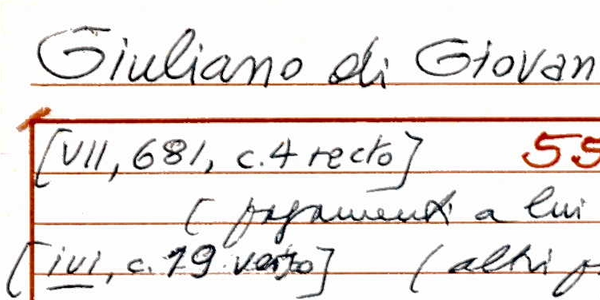 Giuliano di Giovan
[VII, 681, c.4 recto] 55
( pagamenti a lui
[ivi, c. 19 verso] (altri p